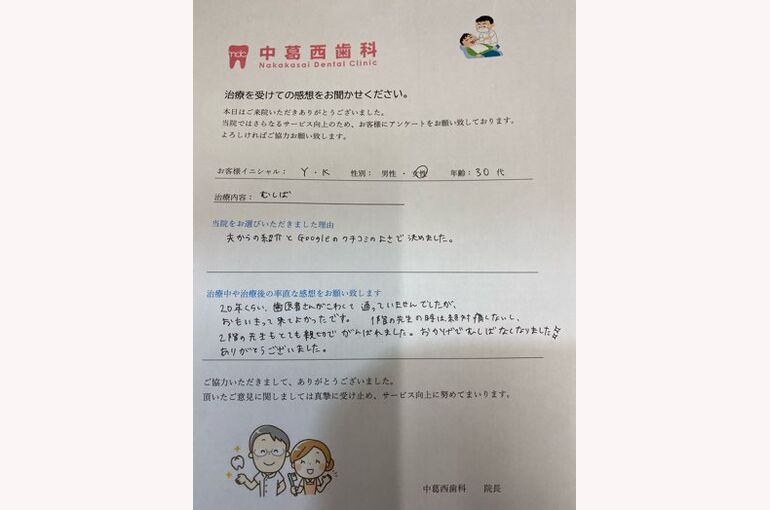 ndc
中葛西歯科
Nakakasai Dental Clinic
治療を受けての感想をお聞かせください。
本日はご来院いただきありがとうございました。
当院ではさらなるサービス向上のため、お客様にアンケートをお願い致しております。
よろしければご協力お願い致します。
お客様イニシャル： Y・K 性別： 男性 ・ 女性 年齢：30 代
治療内容： むしば
当院をお選びいただきました理由
夫からの紹介とGoogleのクチコミのよさで決めました。
治療中や治療後の率直な感想をお願い致します
20年くらい、歯医者さんがこわくて通っていませんでしたが、
おもいきって来てよかったです。 1階の先生の時は絶対痛くないし、
2階の先生もとても親切でがんばれました。おかげでむしばなくなりました
ありがとうございました。
ご協力いただきまして、ありがとうございました。
頂いたご意見に関しましては真摯に受け止め、サービス向上に努めてまいります。
中葛西歯科 院長